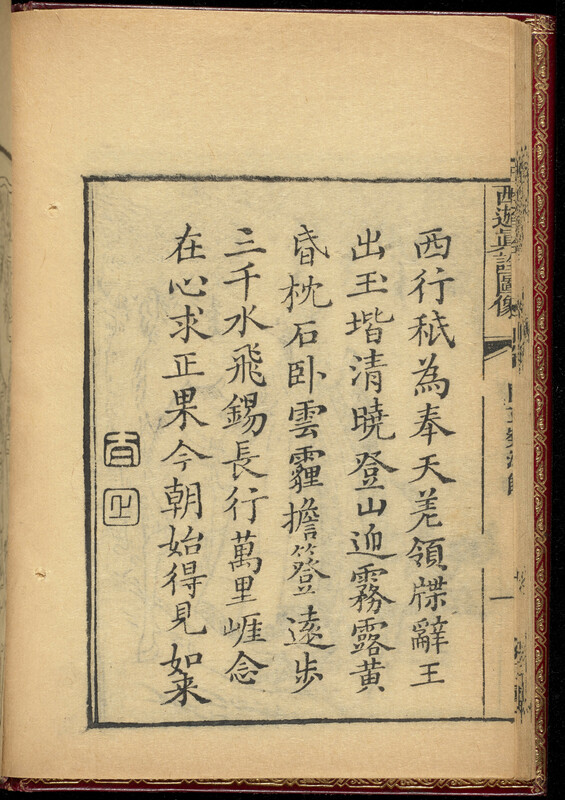 西遊真詮圖像
西行秪為奉天差領牒辭王
出玉堦清曉登山迎霧露黄
昏枕石卧雲霾擔簦遠步
三千水飛錫長行萬里崕念
在心求正果今朝始得見如来